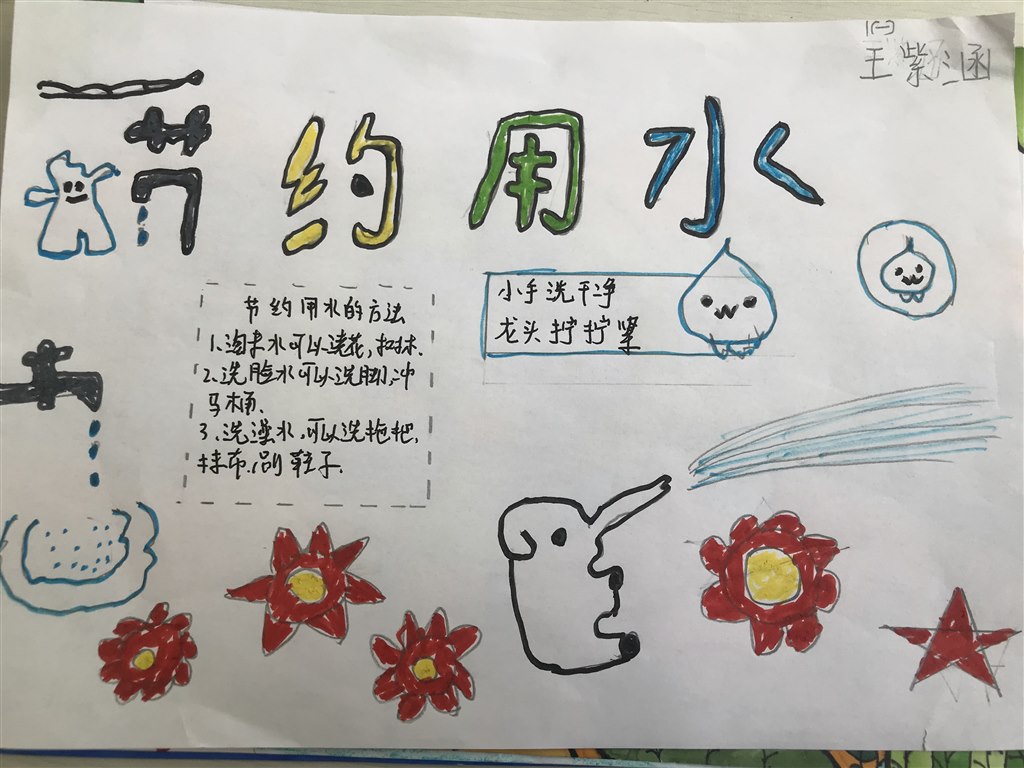 王紫涵
节约用水
小手洗干净
龙头拧拧紧
节约用水的方法
1、淘米水可以浇花,
2、洗脸水可以洗脚,冲
马桶.
3、洗澡水,可以洗拖把,
抹布,刷鞋子.